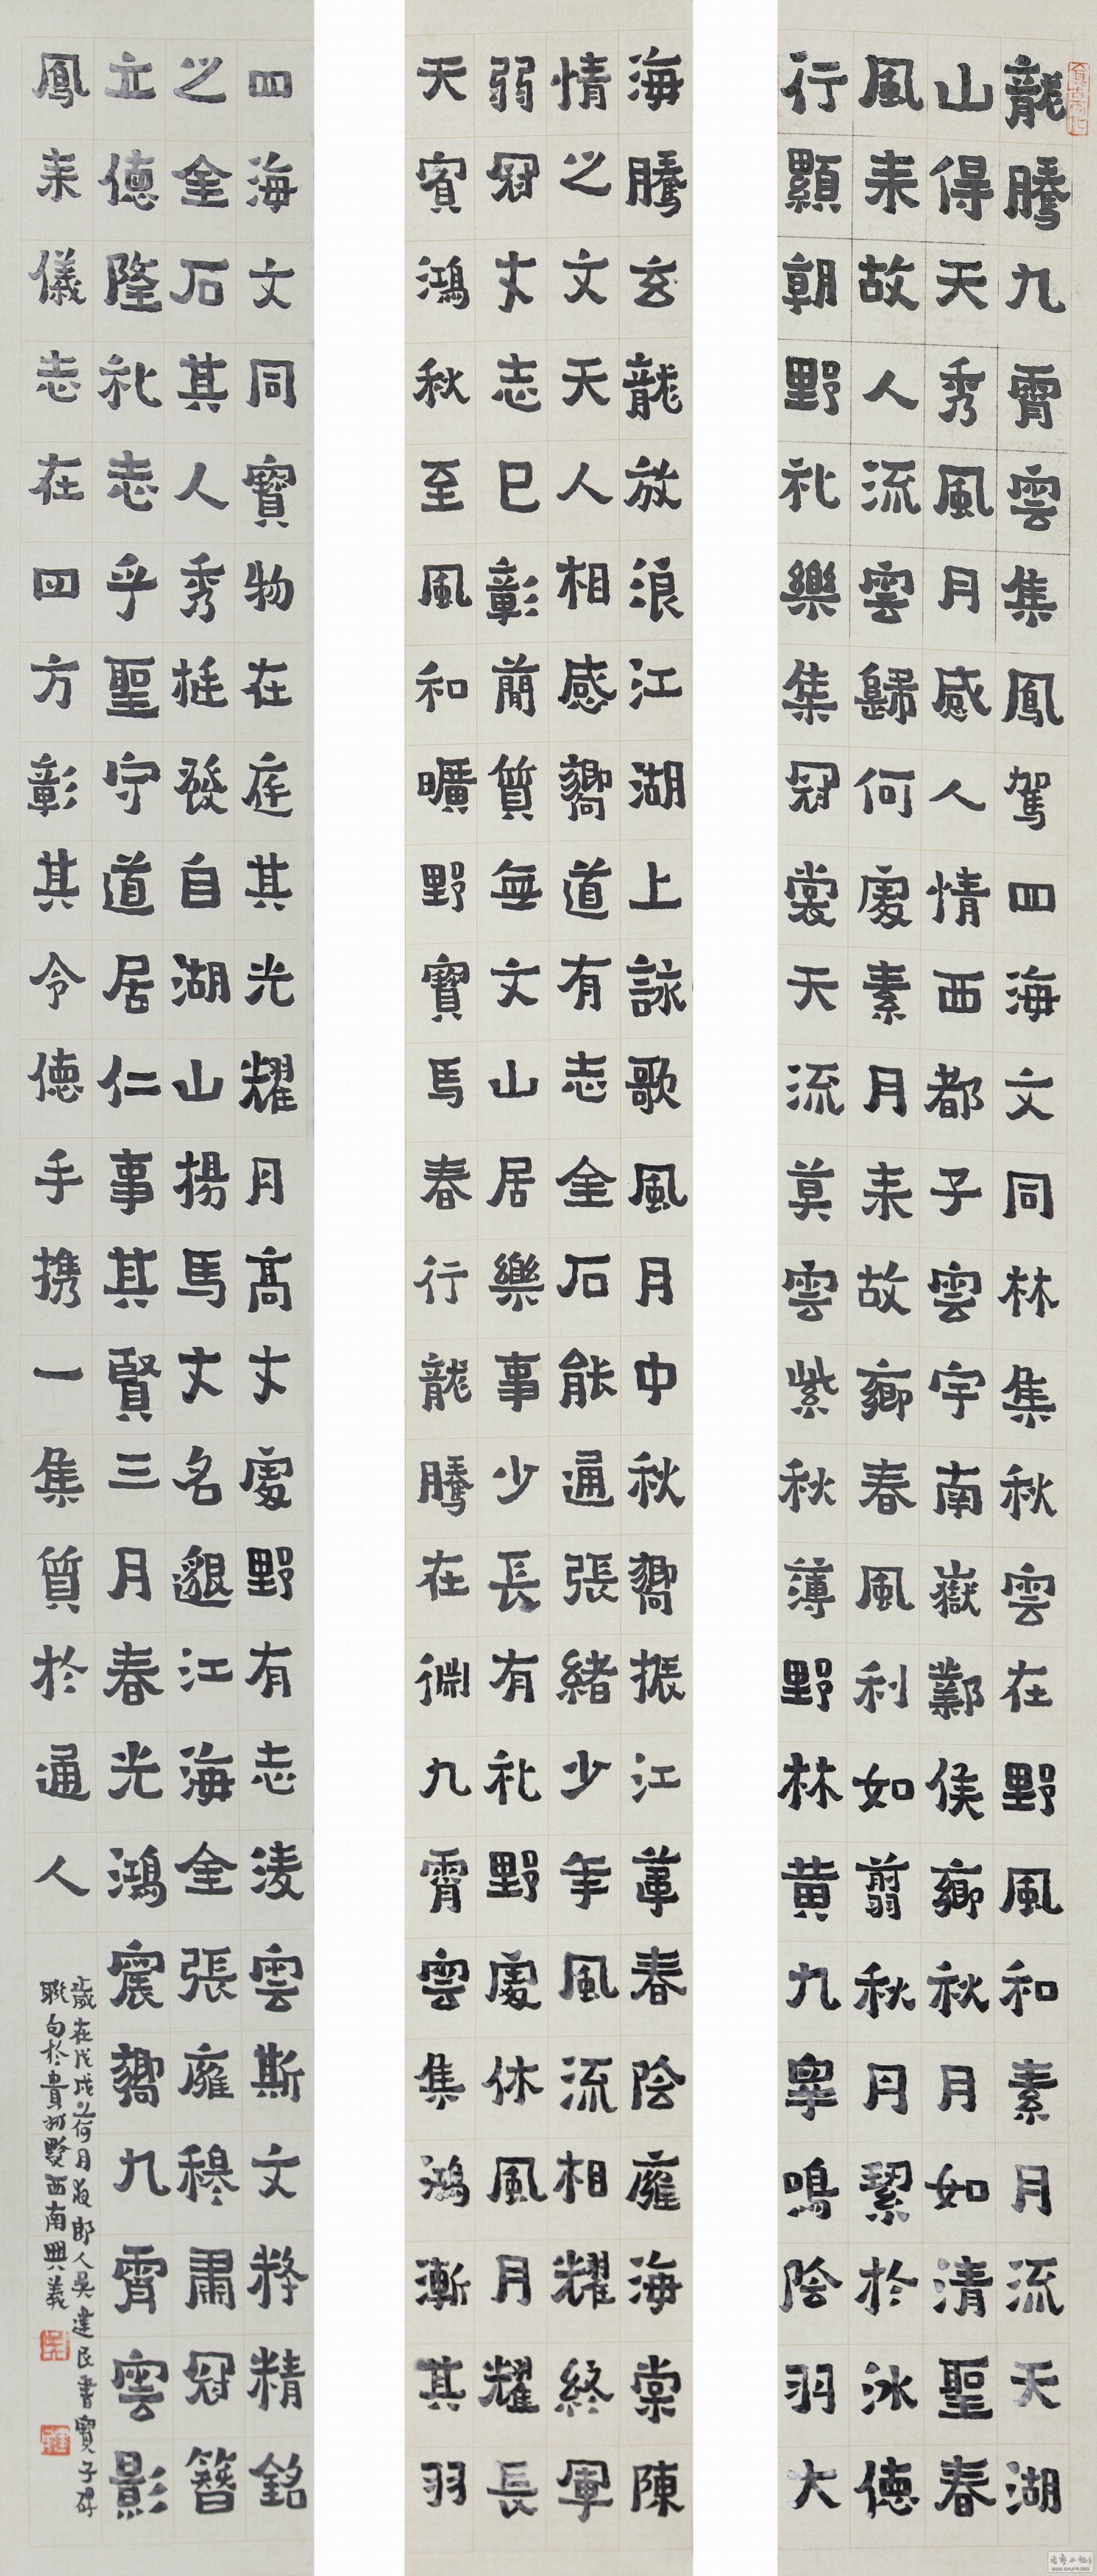 龍騰九霄雲集鳳駕四海文同林集秋雲在野風和素月流天湖
山得天秀風月感人情西都子雲宇南嶽鄴侯鄉秋月如清聖春
風来故人流雲歸何處素月来故鄉春風利如翦秋月絜於泳德
行顯朝野礼樂集冠裳天流莫雲紫秋薄野林黄九皐鳴陰羽大
海騰玄龍放浪江湖上詠歌風月中秋響振江革春陰雍海棠陳
情之文天人相感響道有志金石能通張緒少年風流相耀終軍
弱冠才志已彰蕳質無文山居樂事少長有礼野處休風月耀長
天賓鴻秋至風和曠野寶馬春行龍騰在淵九霄雲集鴻漸其羽
四海文同寶物在庭其光耀月高才處野有志淩雲斯文粹精銘
之金石其人秀挺發自湖山揚馬才名邈江海金張雍穆肅冠簪
立德隆礼志乎聖守道居仁事其賢三月春光鴻震響九霄雲影
鳳来儀志在四方彰其令德手携一集質於通人
歲在戊戌之荷月夜郎人吴建民書寶子碑
聯句於貴州黔西南興義